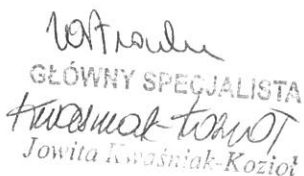 GŁÓWNY SPECJALISTA
Kwaśniak-Kozioł
Jowita Kwaśniak-Kozioł